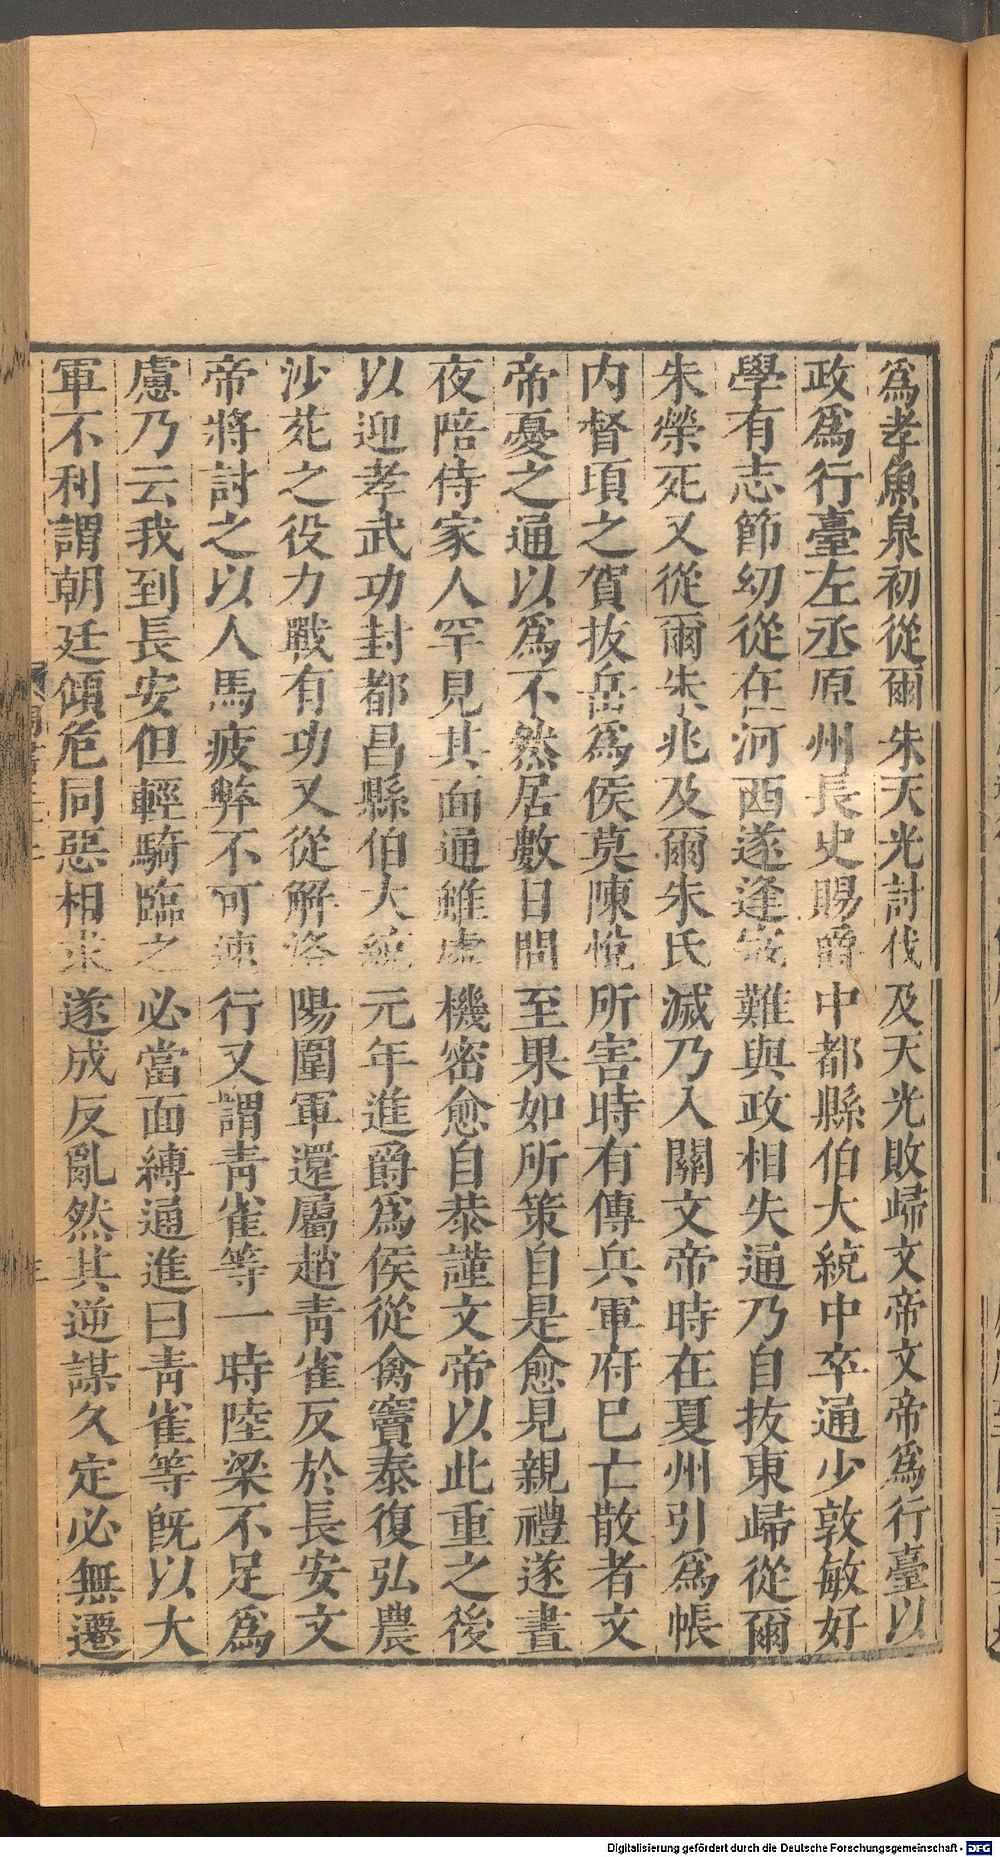 爲孝魚泉初從爾朱天光討伐及天光敗歸文帝文帝爲行臺以
政爲行臺左丞原州長史賜爵中都縣伯大統中卒通少敦敏好
學有志節幼從在河西遂逢寇難與政相失通乃自拔東歸從爾
朱榮死又從爾朱兆及爾朱氏滅乃入關文帝時在夏州引爲帳
内督頃之賀拔岳爲侯莫陳悅所害時有傳兵軍府已亡散者文
帝憂之通以爲不然居數日問至果如所策自是愈見親禮遂晝
夜陪侍家人罕見其面通雖處機密愈自恭謹文帝以此重之後
以迎孝武功封都昌縣伯大統元年進爵爲侯從禽竇泰復弘農
沙苑之役力戰有功又從解洛陽圍軍還屬趙青雀反於長安文
帝將討之以人馬疲弊不可速行又謂青雀等一時陸梁不足爲
慮乃云我到長安但輕騎臨之必當面縛通進曰青雀等既以大
軍不利謂朝廷傾危同惡相求遂成反亂然其逆謀久定必無遷
Digitalisierung gefördert durch die Deutsche Forschungsgemeinschaft - DFG